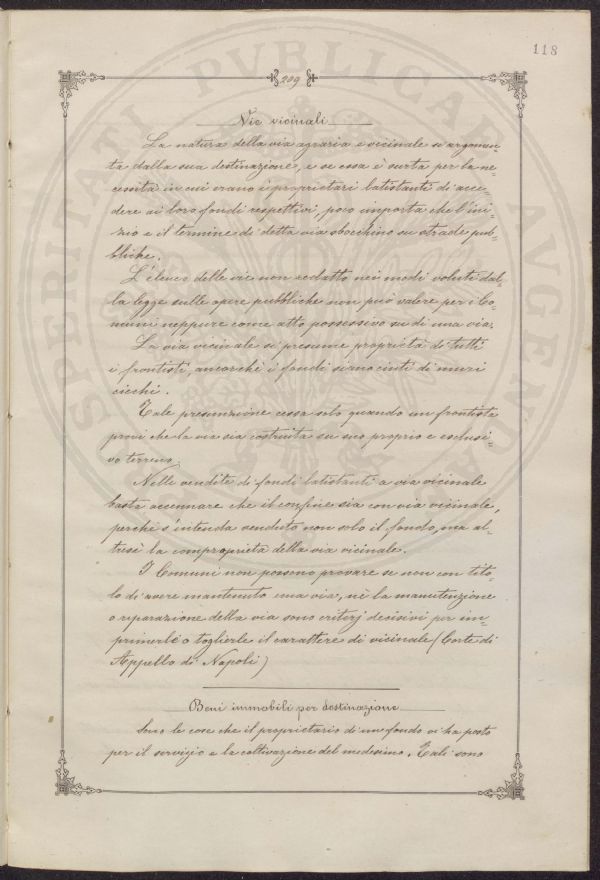 118
209
Vie vicinali
La natura della via agraria e vicinale si argomen-
ta dalla sua destinazione, e se essa è surta per la ne-
cessità in cui erano i proprietari latistanti di acce-
dere ai loro fondi respettivi, poco importa che l'ini-
zio e il termine di detta via sbocchino su strade pub-
bliche.
L'elenco delle vie non redatto nei modi voluti dal-
la legge sulle opere pubbliche non può valere per i Co-
muni neppure come atto possessivo su di una via.
La via vicinale si presume proprietà di tutti
i frontisti, ancorchè i fondi siano cinti di muri
ciechi.
Tale presunzione cessa solo quando un frontista
provi che la via sia costruita su suo proprio e esclusi-
vo terreno.
Nelle vendite di fondi latistanti a via vicinale
basta accennare che il confine sia con via vicinale,
perchè s'intenda venduto non solo il fondo, ma al-
tresì la comproprietà della via vicinale.
I Comuni non possono provare se non con tito-
lo di avere mantenuto una via, nè la manutenzione
o riparazione della via sono criterj decisivi per im-
primerle o toglierle il carattere di vicinale (Corte di
Appello di Napoli)
Beni immobili per destinazione
Sono le cose che il proprietario di un fondo vi ha posto
per il servizio e la coltivazione del medesimo. Tali sono
PROSPERITATI PVBLICAE AVGENDAE